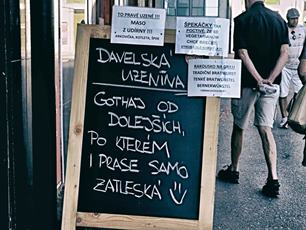 TO PRAVÉ UZENÉ !!!
MASO
Z UDÍRNY !!!
KRKOVIČKA, ROLETA, ŠPEK
ŠPEKÁČKY TAK
POCTIVÉ, ŽE I
VEGETARIÁN
CHCE
RAKOUSKO NA GRILU
TRADIČNÍ BRATWURST
TENKÉ BRATWURSTEL
BERNERWÜRSTEL
DAVELSKÁ
UZENINA
GOTHAJ OD
DOLEJŠÍCH,
PO KTERÉM
I PRASE SAMO
ZATLESKÁ